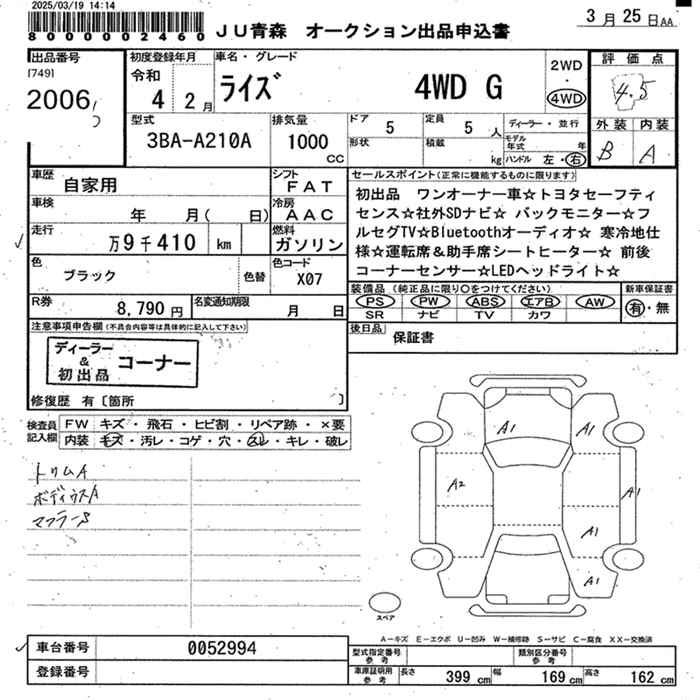 2025/03/19 14:14
8000002460
JU青森 オークション出品申込書
3月25日AA
出品番号
[749]
2006
初度登録年月
令和
4 2月
車名・グレード
ライズ 4WD G
2WD
・
4WD
評価点
4.5
外装 内装
B A
型式
3BA-A210A
排気量
1000
CC
ドア
5
形状
定員
5人
積載
kg
ディーラー・並行
モデル年式 年
ハンドル 左・右
車歴
自家用
シフト
FAT
車検
年 月( 日)
冷房
AAC
走行
万9千410km
燃料
ガソリン
色
ブラック
色替
色コード
X07
R券
8,790円
名変通知期限
月 日
セールスポイント(正常に機能するものに限ります)
初出品 ワンオーナー車☆トヨタセーフティ
センス☆社外SDナビ☆ バックモニター☆フ
ルセグTV☆Bluetoothオーディオ☆ 寒冷地仕
様☆運転席&助手席シートヒーター☆ 前後
コーナーセンサー☆LEDヘッドライト☆
装備品(純正品に限り○をつけてください)
PS PW ABS エアB AW
SR ナビ TV カワ
新車保証書
有・無
後日品
保証書
注意事項申告欄(不具合内容等は具体的に記入して下さい)
ディーラー
&
初出品
コーナー
修復歴 有〔箇所 〕
検査員
記入欄
FW キズ・飛石・ヒビ割・リペア跡・×要
内装 キズ・汚レ・コゲ・穴・スレ・キレ・破レ
トリムA
マフラーS
A1
A1
A2
A1
A1
A1
スペア
A-キズ E-エクボ U-凹み W-補修跡 S-サビ C-腐食 XX-交換済
車台番号
0052994
登録番号
型式指定番号
参考
類別区分番号
参考
車庫証明用
参考
長さ 399cm
幅 169cm
高さ 162cm